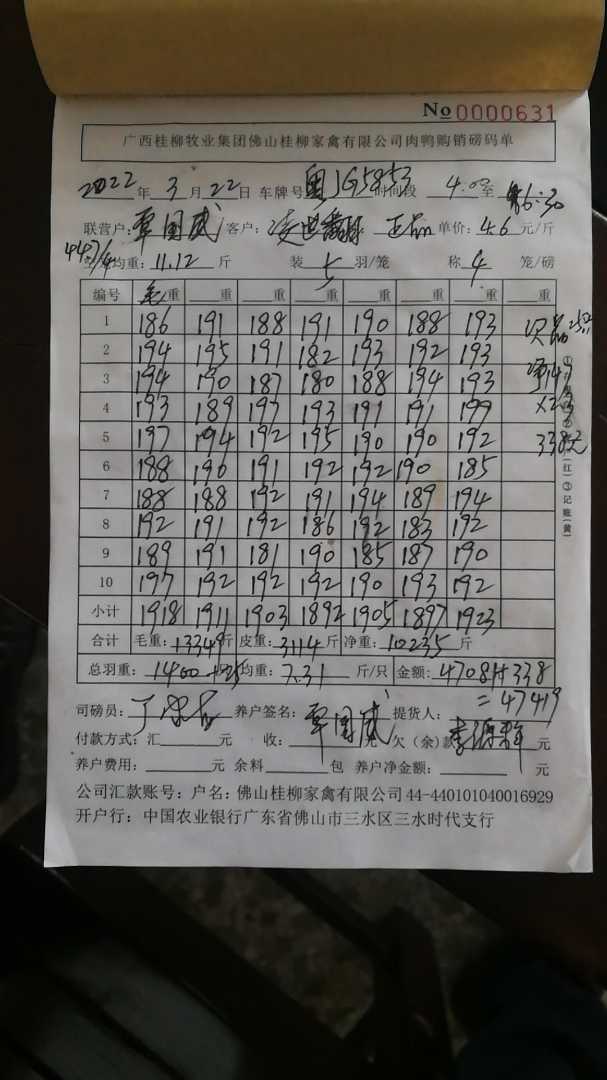 No 0000631
广西桂柳牧业集团佛山桂柳家禽有限公司肉鸭购销磅码单
2022年3月22日 车牌号 粤JG5853 时间段 4.00至 6:30
联营户:覃国威 客户: 正品 单价:4.6元/斤
447/4 均重:11.12斤 装 七 羽/笼 称 4 笼/磅
编号 毛重 重 重 重 重 重 重 重
1 186 191 188 191 190 188 193
2 194 195 191 182 193 192 193
3 194 190 187 180 188 194 193
4 193 189 197 193 191 191 199
5 197 194 192 195 190 190 192
6 188 190 191 192 192 190 185
7 188 188 192 191 194 189 194
8 192 191 192 186 192 183 192
9 189 191 181 190 185 187 190
10 197 192 192 192 190 193 192
小计 1918 1911 1903 1892 1905 1897 1923
次品25只
净147
×2.3
338元
(红)③记账(黄)
合计 毛重:13349斤 皮重:3114斤 净重:10235斤
总羽重:1400 均重:7.31 斤/只 金额:47081+338
=47419
司磅员: 养户签名:覃国威 提货人:
付款方式:汇 元 收: 元 欠(余)款 元
养户费用: 元 余料 包 养户净金额: 元
公司汇款账号:户名:佛山桂柳家禽有限公司44-440101040016929
开户行:中国农业银行广东省佛山市三水区三水时代支行